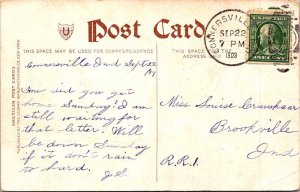 Post Card
THIS SPACE MAY BE USED FOR CORRESPONDENCE
THIS SPACE
ADDRESS
AMERICAN POST CARDS
CONNERSVILLE
SEP 22
7 PM
1909
U.S. POSTAGE
ONE CENT
Connersville Ind Sept 22
How did you get
home Sunday? I am
still waiting for
that letter. Will
be down Sunday
if it don't rain
to hard.
J.S.
Miss Louise
Brookville
Ind
R.R.1.